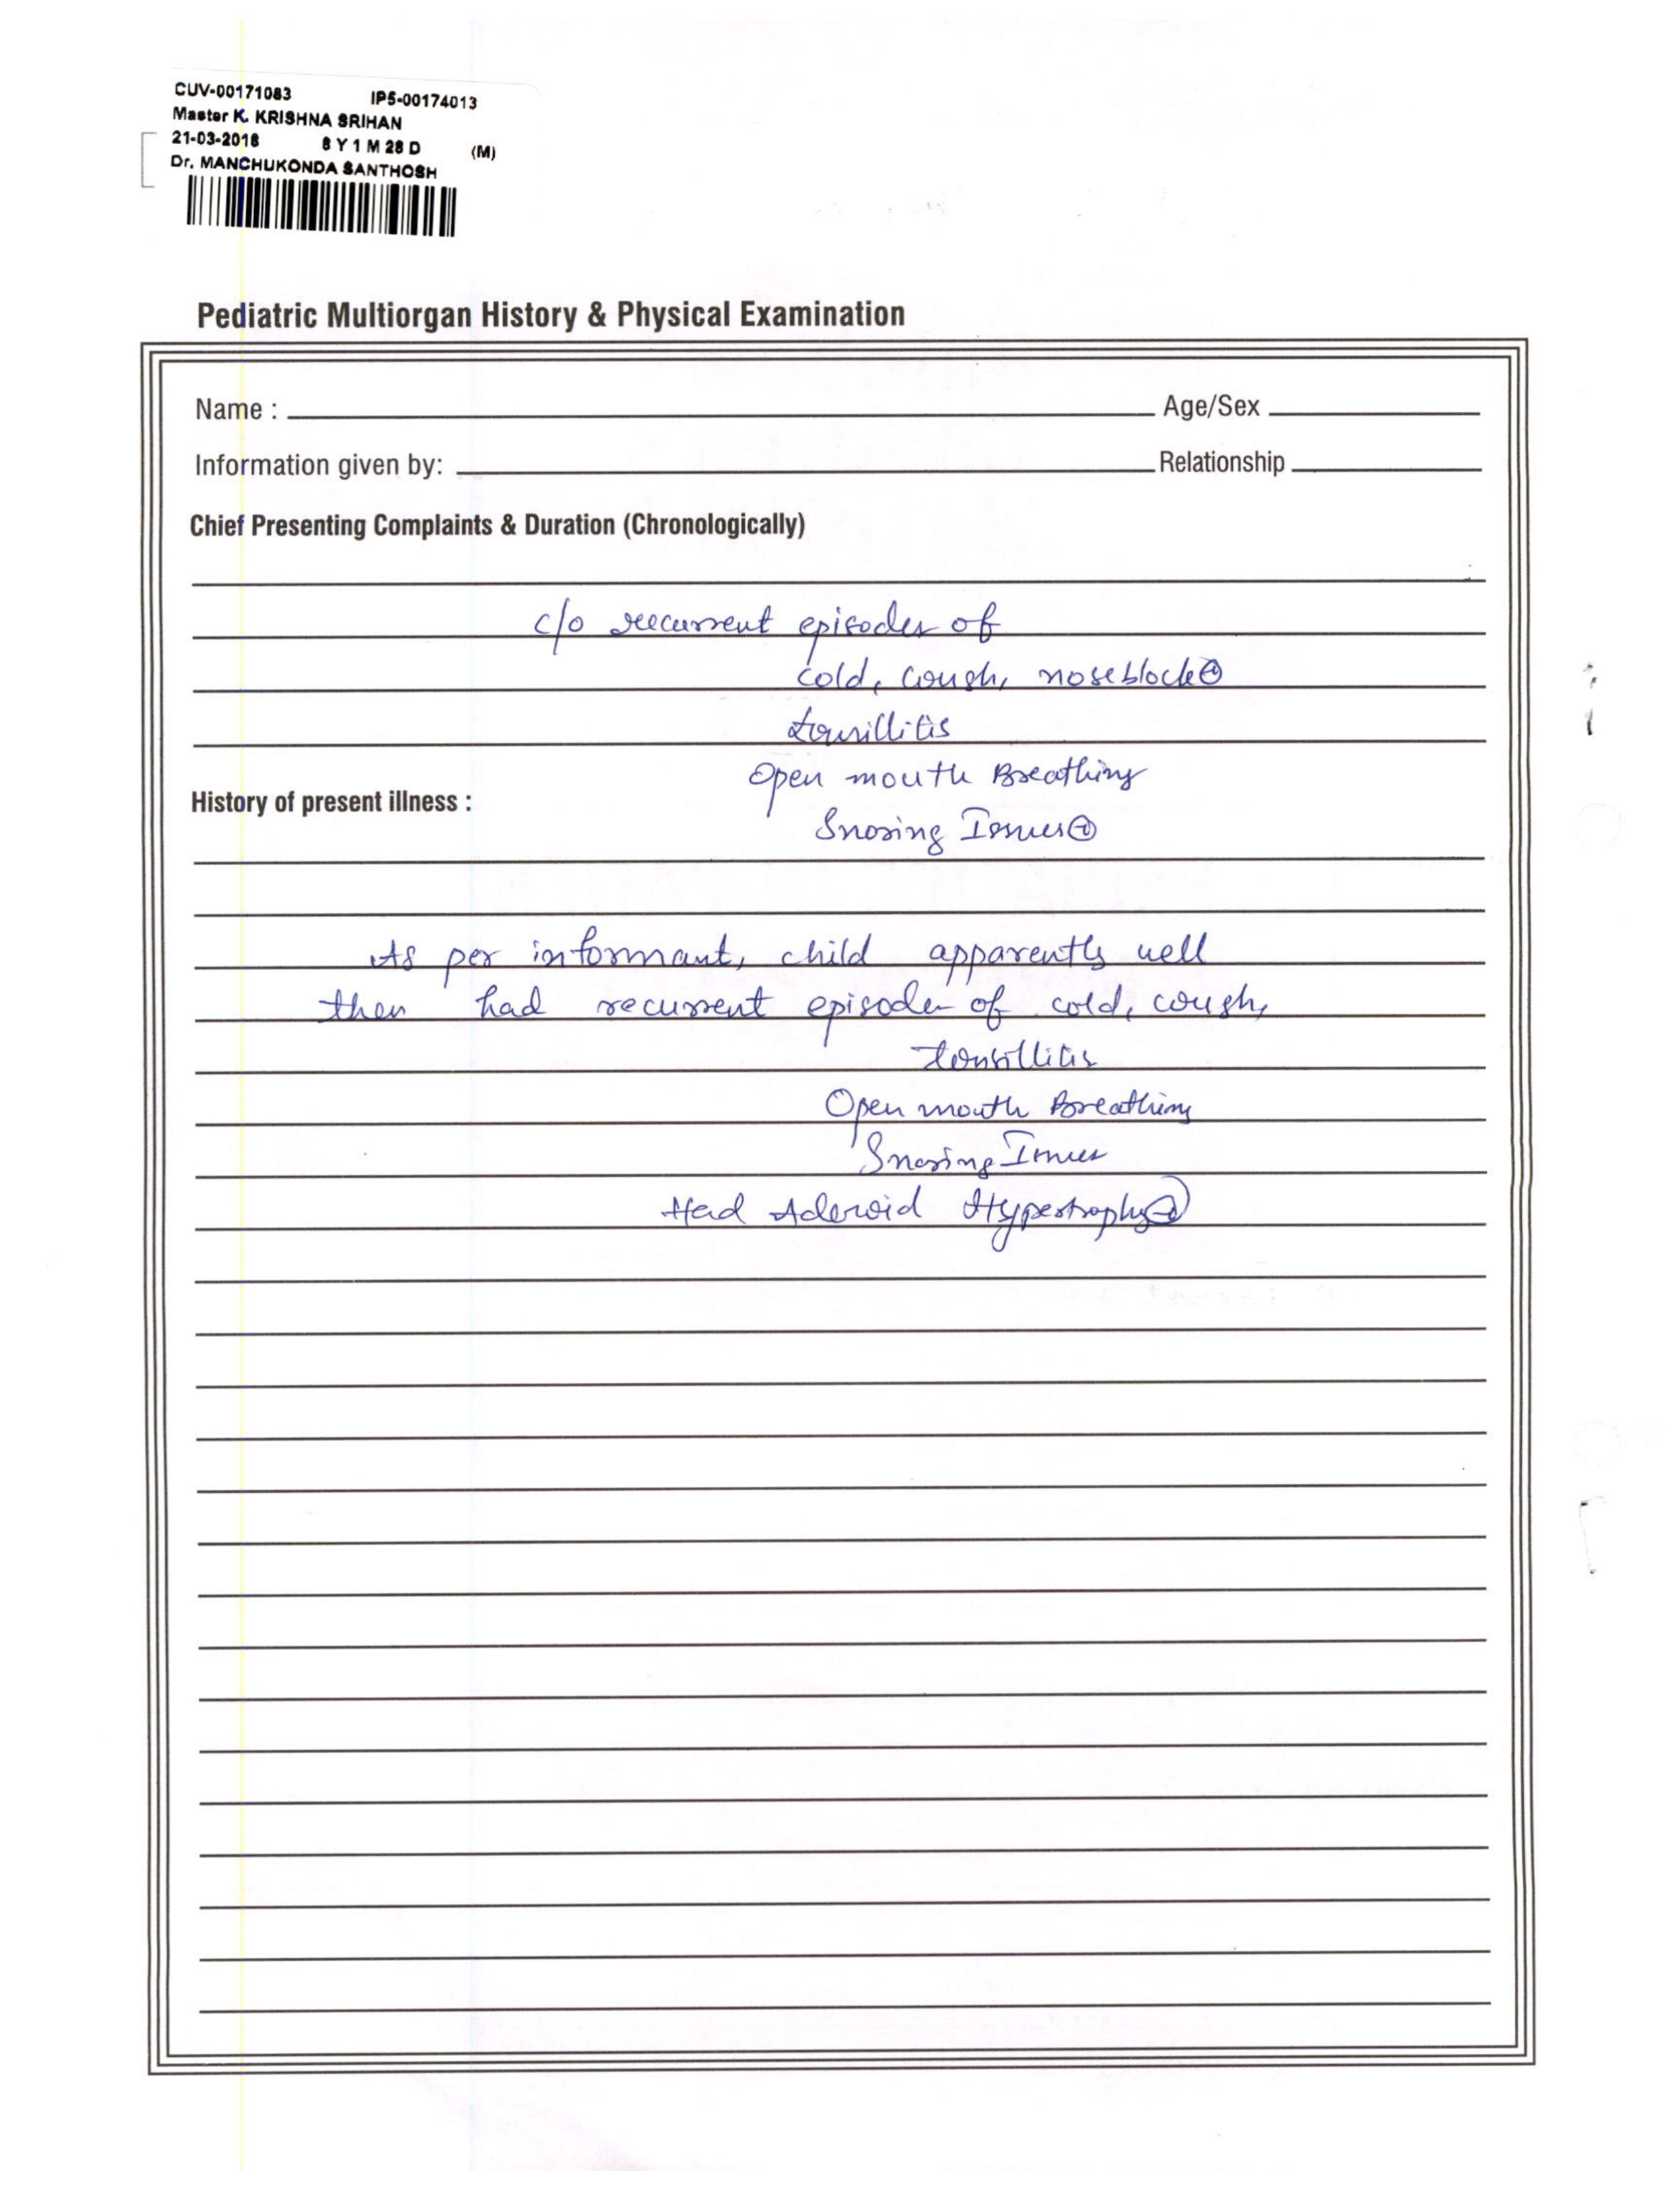 CUV-00171083 IP5-00174013
Master K. KRISHNA SRIHAN
21-03-2016 8 Y 1 M 28 D (M)
Dr. MANCHUKONDA SANTHOSH
Pediatric Multiorgan History & Physical Examination
Name : Age/Sex
Information given by: Relationship
Chief Presenting Complaints & Duration (Chronologically)
c/o recurrent episodes of
cold, cough, noseblock ⊕
tonsillitis
Open mouth Breathing
History of present illness :
Snoring Issues ⊕
As per informant, child apparently well
then had recurrent episodes of cold, cough,
tonsillitis
Open mouth Breathing
Snoring Issues
Had Adenoid Hypertrophy ⊕